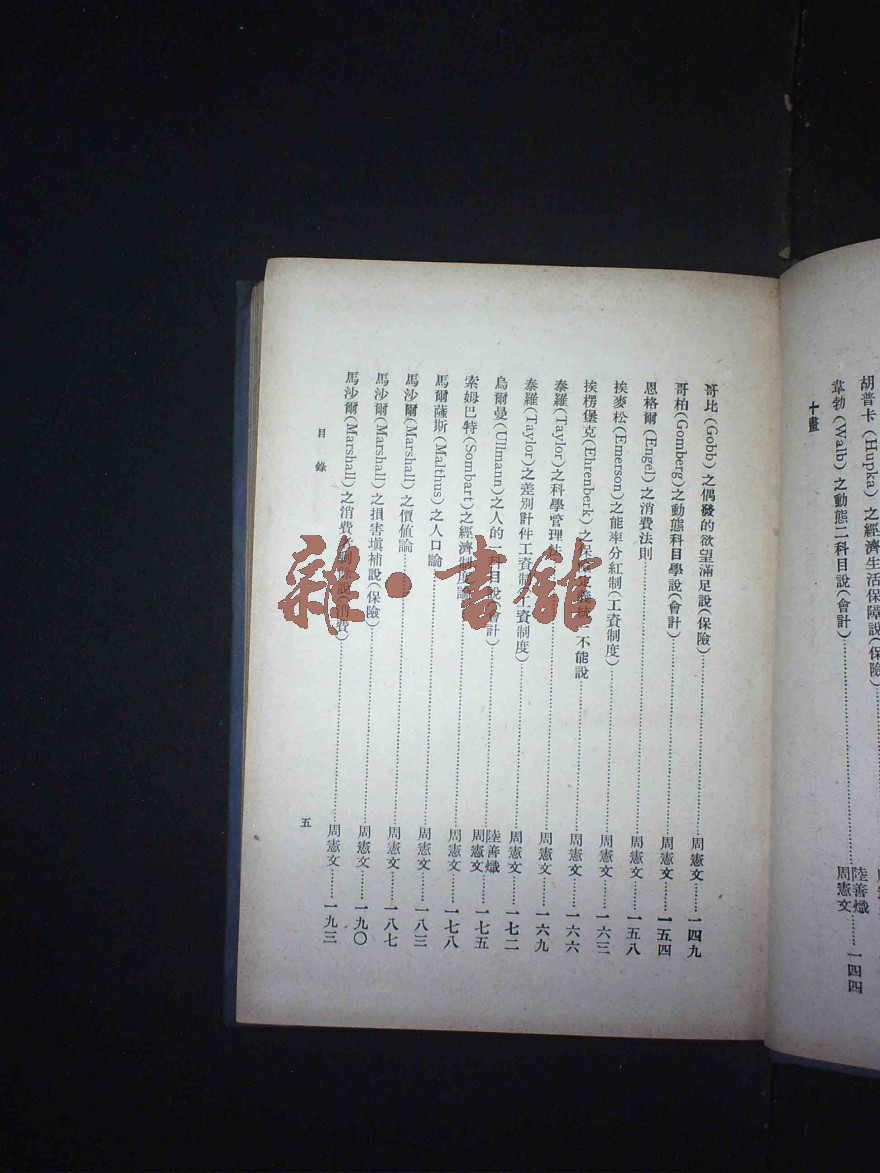 胡普卡(Hupka)之經濟生活保障說(保險)
韋勃(Walb)之動態二科目說(會計)……陸善熾 周憲文……一四四
十畫
哥比(Gobb)之偶發的欲望滿足說(保險)……周憲文……一四九
哥柏(Gomberg)之動態科目學說(會計)……周憲文……一五四
恩格爾(Engel)之消費法則……周憲文……一五八
挨麥松(Emerson)之能率分紅制(工資制度)……周憲文……一六三
挨楞堡克(Ehrenberk)之保險定義統一不能說……周憲文……一六六
泰羅(Taylor)之科學管理法……周憲文……一六九
泰羅(Taylor)之差別計件工資制(工資制度)……周憲文……一七二
烏爾曼(Ullmann)之人的一科目說(會計)……陸善熾 周憲文……一七五
索姆巴特(Sombart)之經濟制度論……周憲文……一七八
馬爾薩斯(Malthus)之人口論……周憲文……一八三
馬沙爾(Marshall)之價值論……周憲文……一八七
馬沙爾(Marshall)之損害塡補說(保險)……周憲文……一九〇
馬沙爾(Marshall)之消費者剩餘說(消費)……周憲文……一九三
目錄
五
雜·書館